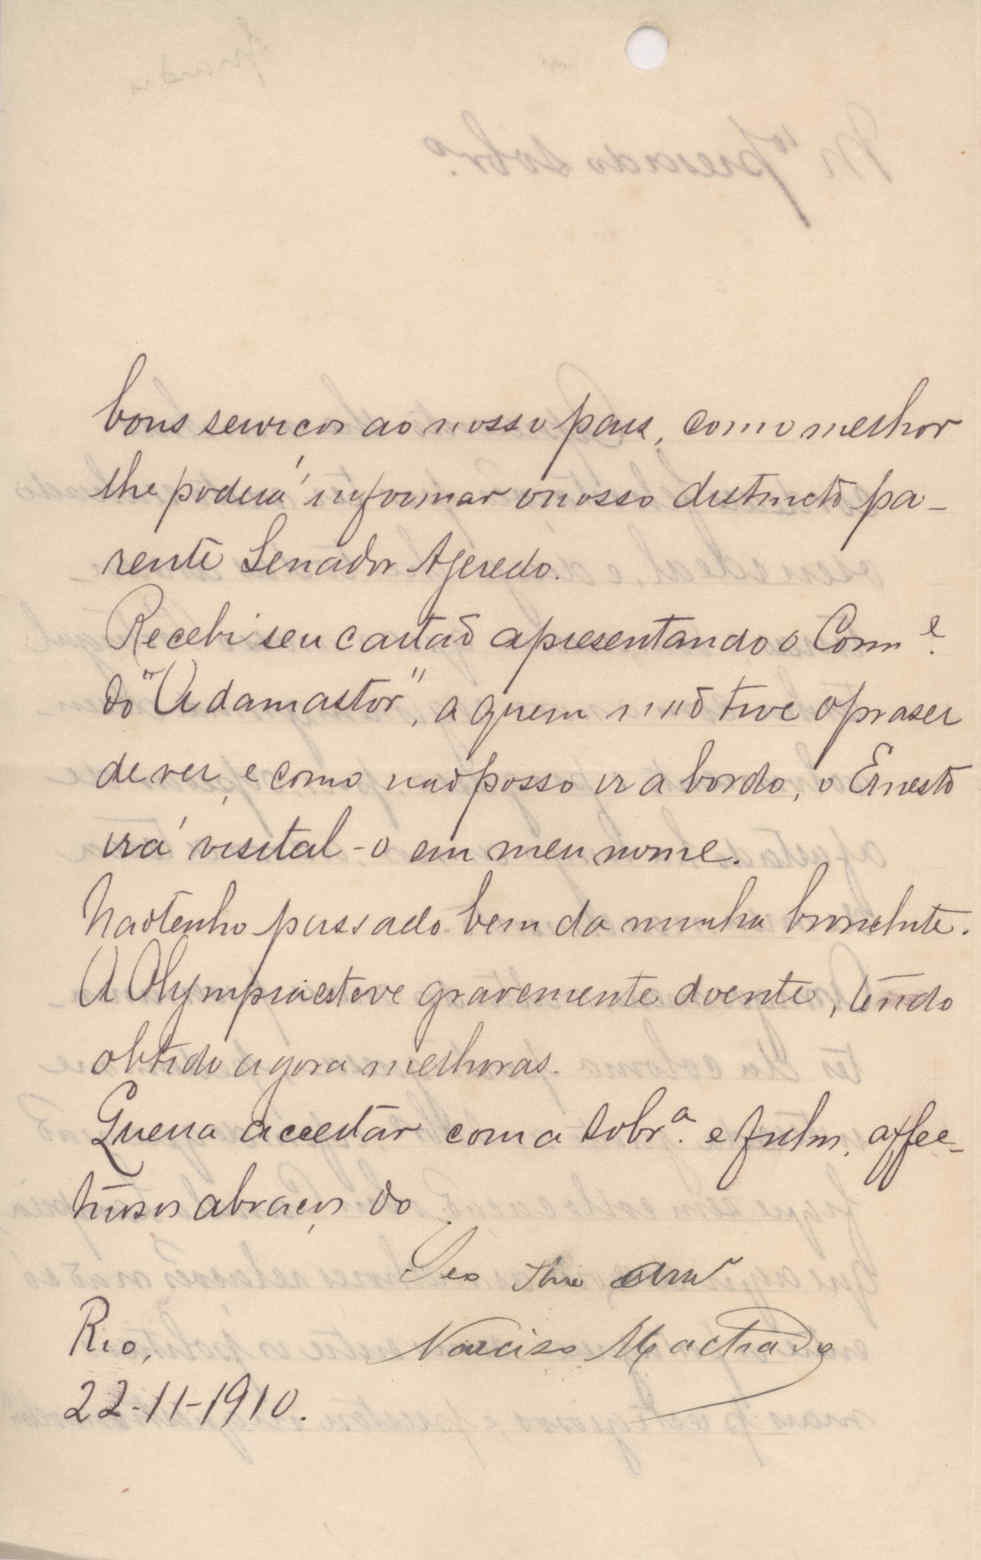 bons serviços ao nosso pais, como melhor
lhe poderá informar o nosso distincto pa-
rente Senador Azeredo.
Recebi seu cartaõ apresentando o Comm.e
do "Adamastor", a quem naõ tive o praser
de ver, e como naõ posso ir a bordo, o Ernesto
irá visital-o em meu nome.
Naõ tenho passado bem da minha bronchite.
A Olympia esteve gravemente doente, tendo
obtido agora melhoras.
Queira acceitar com a Sobr.a e filhos, affec-
tuosos abraços do
Seo Thio
Narciso Machado
Rio,
22-11-1910.